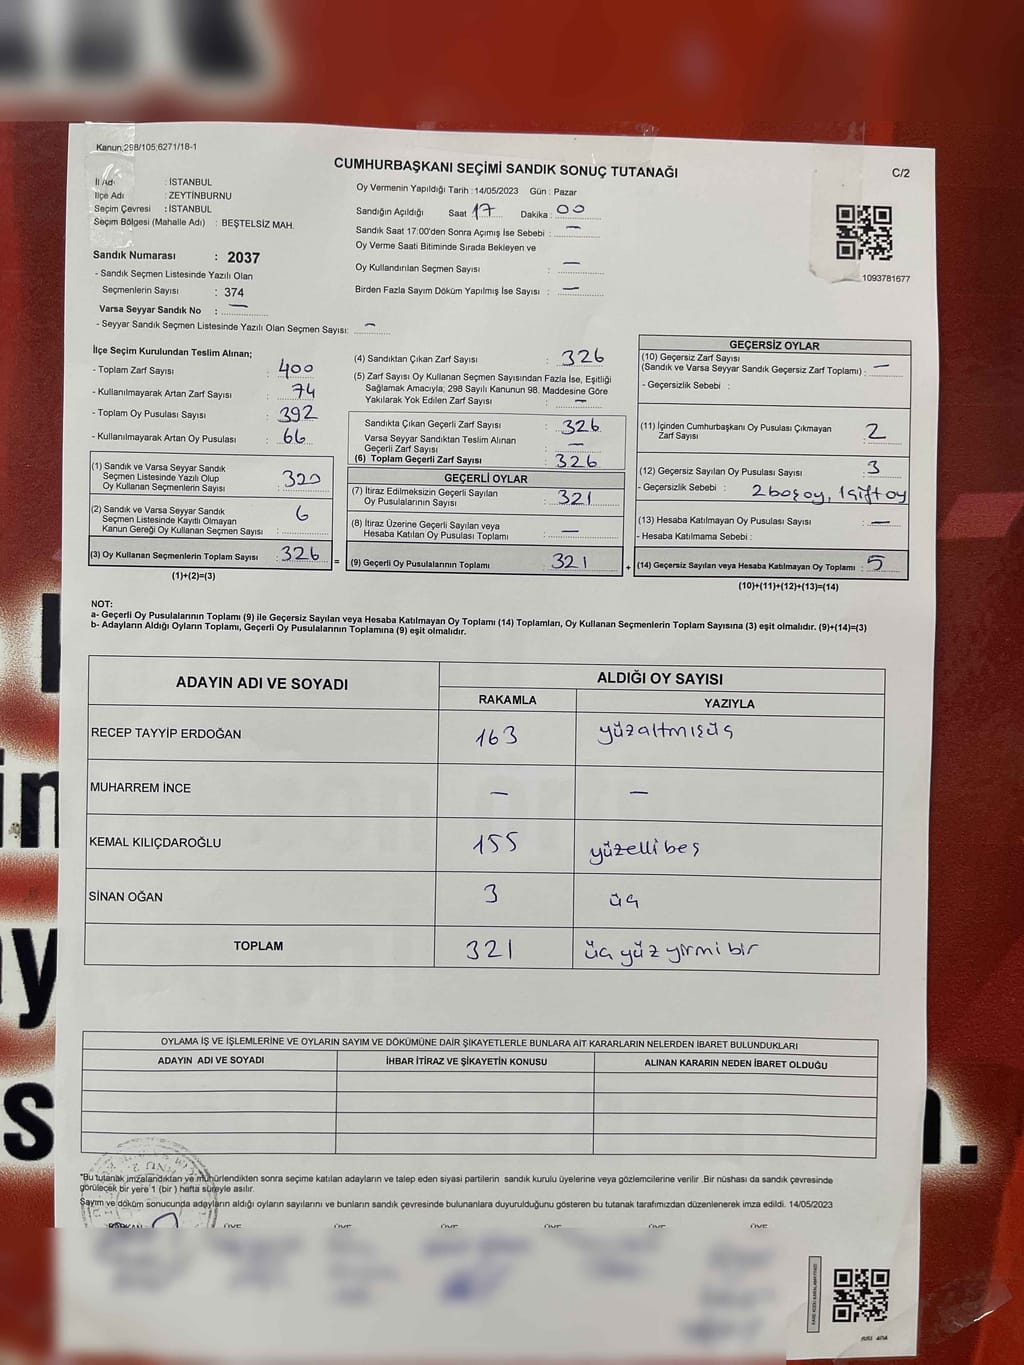 Kanun,298/105,6271/18-1
CUMHURBAŞKANI SEÇİMİ SANDIK SONUÇ TUTANAĞI
C/2
İl Adı : İSTANBUL
İlçe Adı : ZEYTİNBURNU
Seçim Çevresi : İSTANBUL
Seçim Bölgesi (Mahalle Adı) : BEŞTELSİZ MAH.
Sandık Numarası : 2037
- Sandık Seçmen Listesinde Yazılı Olan
Seçmenlerin Sayısı : 374
Varsa Seyyar Sandık No : —
- Seyyar Sandık Seçmen Listesinde Yazılı Olan Seçmen Sayısı: —
Oy Vermenin Yapıldığı Tarih :14/05/2023 Gün : Pazar
Sandığın Açıldığı Saat 17 Dakika : 00
Sandık Saat 17:00'den Sonra Açımış İse Sebebi : —
Oy Verme Saati Bitiminde Sırada Bekleyen ve
Oy Kullandırılan Seçmen Sayısı : —
Birden Fazla Sayım Döküm Yapılmış İse Sayısı : —
1093781677
İlçe Seçim Kurulundan Teslim Alınan;
- Toplam Zarf Sayısı : 400
- Kullanılmayarak Artan Zarf Sayısı : 74
- Toplam Oy Pusulası Sayısı : 392
- Kullanılmayarak Artan Oy Pusulası : 66
(1) Sandık ve Varsa Seyyar Sandık
Seçmen Listesinde Yazılı Olup
Oy Kullanan Seçmenlerin Sayısı : 320
(2) Sandık ve Varsa Seyyar Sandık
Seçmen Listesinde Kayıtlı Olmayan
Kanun Gereği Oy Kullanan Seçmen Sayısı : 6
(3) Oy Kullanan Seçmenlerin Toplam Sayısı : 326
(1)+(2)=(3)
=
(4) Sandıktan Çıkan Zarf Sayısı : 326
(5) Zarf Sayısı Oy Kullanan Seçmen Sayısından Fazla İse, Eşitliği
Sağlamak Amacıyla; 298 Sayılı Kanunun 98. Maddesine Göre
Yakılarak Yok Edilen Zarf Sayısı : —
Sandıkta Çıkan Geçerli Zarf Sayısı : 326
Varsa Seyyar Sandıktan Teslim Alınan
Geçerli Zarf Sayısı : —
(6) Toplam Geçerli Zarf Sayısı : 326
GEÇERLİ OYLAR
(7) İtiraz Edilmeksizin Geçerli Sayılan
Oy Pusulalarının Sayısı : 321
(8) İtiraz Üzerine Geçerli Sayılan veya
Hesaba Katılan Oy Pusulası Toplamı : —
(9) Geçerli Oy Pusulalarının Toplamı : 321
+
GEÇERSİZ OYLAR
(10) Geçersiz Zarf Sayısı
(Sandık ve Varsa Seyyar Sandık Geçersiz Zarf Toplamı) : —
- Geçersizlik Sebebi :
(11) İçinden Cumhurbaşkanı Oy Pusulası Çıkmayan
Zarf Sayısı : 2
(12) Geçersiz Sayılan Oy Pusulası Sayısı : 3
- Geçersizlik Sebebi : 2 boş oy, 1 çift oy
(13) Hesaba Katılmayan Oy Pusulası Sayısı : —
- Hesaba Katılmama Sebebi :
(14) Geçersiz Sayılan veya Hesaba Katılmayan Oy Toplamı : 5
(10)+(11)+(12)+(13)=(14)
NOT:
a- Geçerli Oy Pusulalarının Toplamı (9) ile Geçersiz Sayılan veya Hesaba Katılmayan Oy Toplamı (14) Toplamları, Oy Kullanan Seçmenlerin Toplam Sayısına (3) eşit olmalıdır. (9)+(14)=(3)
b- Adayların Aldığı Oyların Toplamı, Geçerli Oy Pusulalarının Toplamına (9) eşit olmalıdır.
ADAYIN ADI VE SOYADI
ALDIĞI OY SAYISI
RAKAMLA YAZIYLA
RECEP TAYYİP ERDOĞAN 163 yüzaltmışüç
MUHARREM İNCE — —
KEMAL KILIÇDAROĞLU 155 yüzellibeş
SİNAN OĞAN 3 üç
TOPLAM 321 üç yüz yirmi bir
OYLAMA İŞ VE İŞLEMLERİNE VE OYLARIN SAYIM VE DÖKÜMÜNE DAİR ŞİKAYETLERLE BUNLARA AİT KARARLARIN NELERDEN İBARET BULUNDUKLARI
ADAYIN ADI VE SOYADI İHBAR İTİRAZ VE ŞİKAYETİN KONUSU ALINAN KARARIN NEDEN İBARET OLDUĞU
*Bu tutanak imzalandıktan ve mühürlendikten sonra seçime katılan adayların ve talep eden siyasi partilerin sandık kurulu üyelerine veya gözlemcilerine verilir .Bir nüshası da sandık çevresinde
görülecek bir yere 1 (bir ) hafta süreyle asılır.
Sayım ve döküm sonucunda adayların aldığı oyların sayılarını ve bunların sandık çevresinde bulunanlara duyurulduğunu gösteren bu tutanak tarafımızdan düzenlenerek imza edildi. 14/05/2023
BAŞKAN ÜYE ÜYE ÜYE ÜYE ÜYE ÜYE